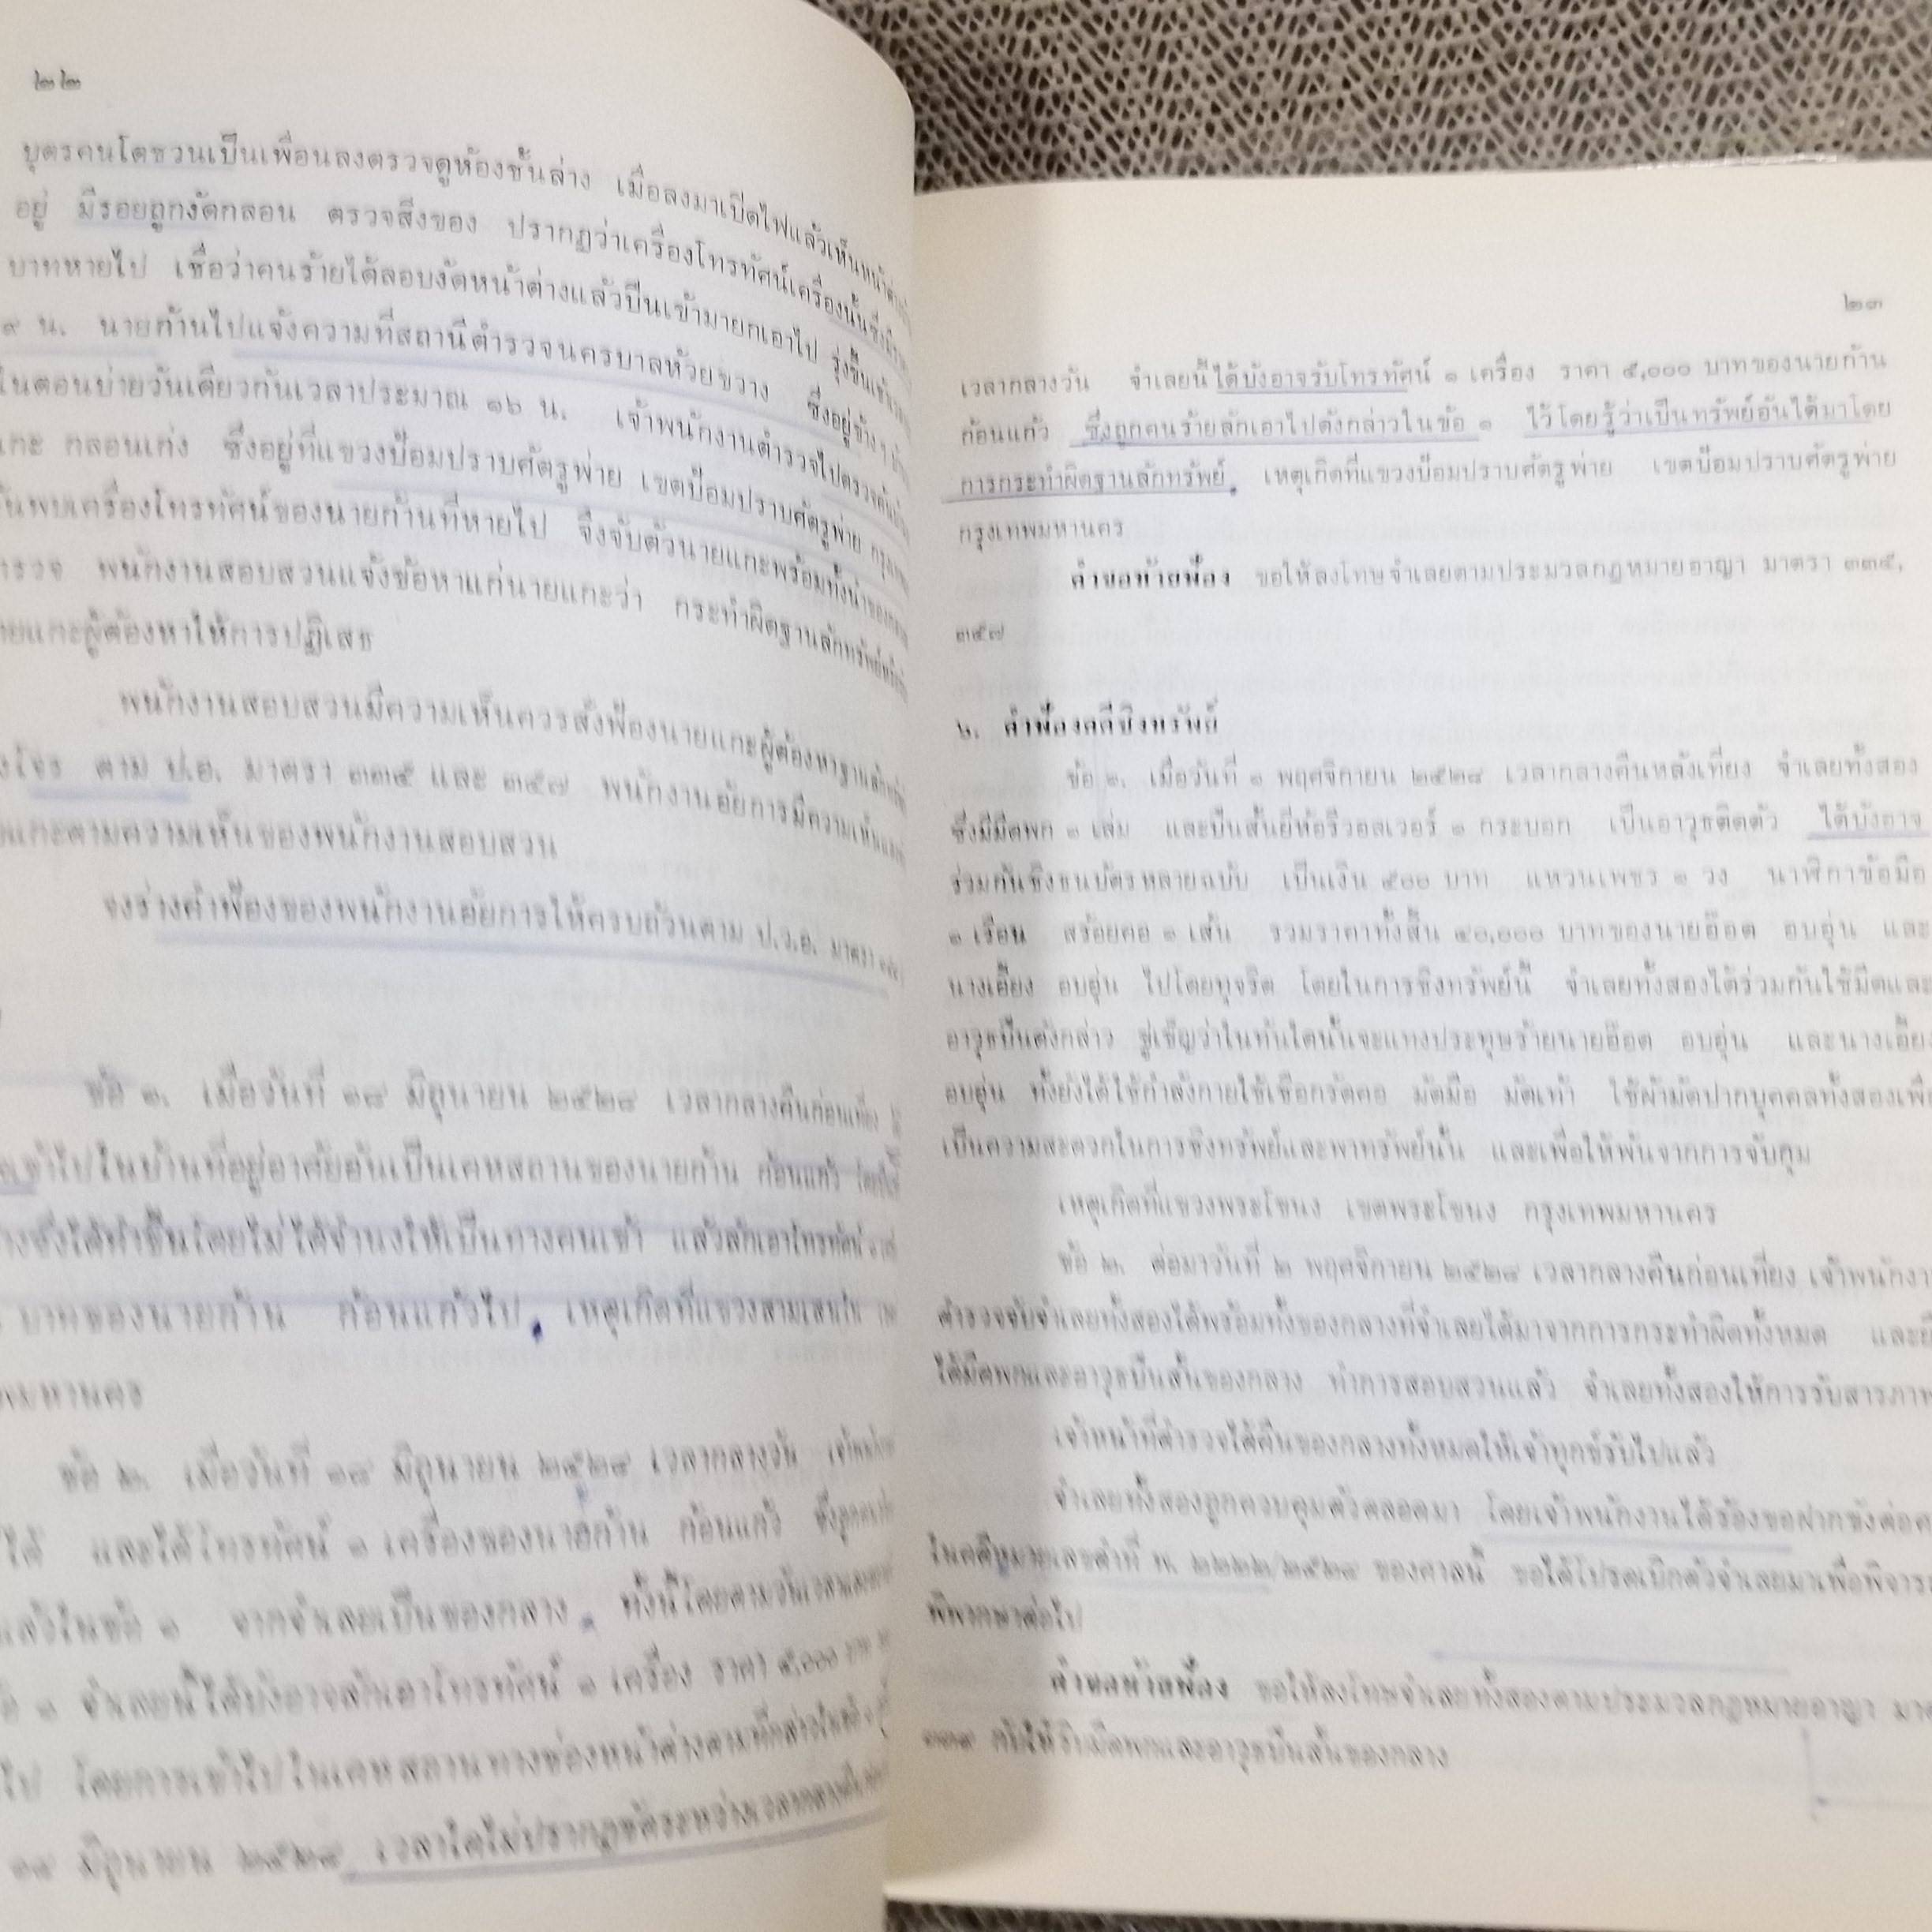 ๒๒
บุตรคนโตชวนเป็นเพื่อนลงตรวจดูห้องชั้นล่าง เมื่อลงมาเปิดไฟแล้วเห็นหน้าต่าง
อยู่ มีรอยถูกงัดกลอน ตรวจสิ่งของ ปรากฏว่าเครื่องโทรทัศน์เครื่องนั้นซึ่ง
บาทหายไป เชื่อว่าคนร้ายได้ลอบงัดหน้าต่างแล้วปีนเข้ามายกเอาไป รุ่งขึ้นเช้า
๙ น. นายก้านไปแจ้งความที่สถานีตำรวจนครบาลห้วยขวาง ซึ่งอยู่ข้าง ๆ
ในตอนบ่ายวันเดียวกันเวลาประมาณ ๑๖ น. เจ้าพนักงานตำรวจไปตรวจค้น
แกะ กลอนเก่ง ซึ่งอยู่ที่แขวงป้อมปราบศัตรูพ่าย เขตป้อมปราบศัตรูพ่าย
พบเครื่องโทรทัศน์ของนายก้านที่หายไป จึงจับตัวนายแกะพร้อมทั้งนำของกลาง
ตำรวจ พนักงานสอบสวนแจ้งข้อหาแก่นายแกะว่า กระทำผิดฐานลักทรัพย์หรือ
นายแกะผู้ต้องหาให้การปฏิเสธ
พนักงานสอบสวนมีความเห็นควรสั่งฟ้องนายแกะผู้ต้องหาฐานลักทรัพย์
โจร ตาม ป.อ. มาตรา ๓๓๕ และ ๓๕๗ พนักงานอัยการมีความเห็น
แกะตามความเห็นของพนักงานสอบสวน
จงร่างคำฟ้องของพนักงานอัยการให้ครบถ้วนตาม ป.ว.อ. มาตรา
ข้อ ๑. เมื่อวันที่ ๑๘ มิถุนายน ๒๕๒๘ เวลากลางคืนก่อนเที่ยง
เข้าไปในบ้านที่อยู่อาศัยอันเป็นเคหสถานของนายก้าน ก้อนแก้ว
ซึ่งได้ทำขึ้นโดยไม่ได้จำนงให้เป็นทางคนเข้า แล้วลักเอาโทรทัศน์
บาทของนายก้าน ก้อนแก้วไป เหตุเกิดที่แขวงสามเสนใน
มหานคร
ข้อ ๒. เมื่อวันที่ ๑๘ มิถุนายน ๒๕๒๘ เวลากลางวัน
ได้ และได้โทรทัศน์ ๑ เครื่องของนายก้าน ก้อนแก้ว ซึ่งถูก
แล้วในข้อ ๑ จากจำเลยเป็นของกลาง ทั้งนี้โดยตามวันเวลา
๑ จำเลยนี้ได้บังอาจลักเอาโทรทัศน์ ๑ เครื่อง ราคา ๕,๐๐๐
ไป โดยการเข้าไปในเคหสถานทางช่องหน้าต่างตามที่กล่าวในข้อ
๑๘ มิถุนายน ๒๕๒๘ เวลาใดไม่ปรากฏชัดระหว่างเวลา
๒๓
เวลากลางวัน จำเลยนี้ได้บังอาจรับโทรทัศน์ ๑ เครื่อง ราคา ๕,๐๐๐ บาทของนายก้าน
ก้อนแก้ว ซึ่งถูกคนร้ายลักเอาไปดังกล่าวในข้อ ๑ ไว้โดยรู้ว่าเป็นทรัพย์อันได้มาโดย
การกระทำผิดฐานลักทรัพย์ เหตุเกิดที่แขวงป้อมปราบศัตรูพ่าย เขตป้อมปราบศัตรูพ่าย
กรุงเทพมหานคร
คำขอท้ายฟ้อง ขอให้ลงโทษจำเลยตามประมวลกฎหมายอาญา มาตรา ๓๓๕,
๓๕๗
๖. คำฟ้องคดีชิงทรัพย์
ข้อ ๑. เมื่อวันที่ ๑ พฤศจิกายน ๒๕๒๘ เวลากลางคืนหลังเที่ยง จำเลยทั้งสอง
ซึ่งมีมีดพก ๑ เล่ม และปืนสั้นยี่ห้อรีวอลเวอร์ ๑ กระบอก เป็นอาวุธติดตัว ได้บังอาจ
ร่วมกันชิงธนบัตรหลายฉบับ เป็นเงิน ๕๐๐ บาท แหวนเพชร ๑ วง นาฬิกาข้อมือ
๑ เรือน สร้อยคอ ๑ เส้น รวมราคาทั้งสิ้น ๔๐,๐๐๐ บาทของนายอ๊อด อบอุ่น และ
นางเอี้ยง อบอุ่น ไปโดยทุจริต โดยในการชิงทรัพย์นี้ จำเลยทั้งสองได้ร่วมกันใช้มีดและ
อาวุธปืนดังกล่าว ขู่เข็ญว่าในทันใดนั้นจะแทงประทุษร้ายนายอ๊อด อบอุ่น และนางเอี้ยง
อบอุ่น ทั้งยังได้ใช้กำลังกายใช้เชือกรัดคอ มัดมือ มัดเท้า ใช้ผ้ามัดปากบุคคลทั้งสองเพื่อ
เป็นความสะดวกในการชิงทรัพย์และพาทรัพย์นั้น และเพื่อให้พ้นจากการจับกุม
เหตุเกิดที่แขวงพระโขนง เขตพระโขนง กรุงเทพมหานคร
ข้อ ๒. ต่อมาวันที่ ๒ พฤศจิกายน ๒๕๒๘ เวลากลางคืนก่อนเที่ยง เจ้าพนักงาน
ตำรวจจับจำเลยทั้งสองได้พร้อมทั้งของกลางที่จำเลยได้มาจากการกระทำผิดทั้งหมด และยึ
ได้มีดพกและอาวุธปืนสั้นของกลาง ทำการสอบสวนแล้ว จำเลยทั้งสองให้การรับสารภาพ
เจ้าหน้าที่ตำรวจได้คืนของกลางทั้งหมดให้เจ้าทุกข์รับไปแล้ว
จำเลยทั้งสองถูกควบคุมตัวตลอดมา โดยเจ้าพนักงานได้ร้องขอฝากขังต่อ
ในคดีหมายเลขดำที่ พ. ๒๒๒๒/๒๕๒๘ ของศาลนี้ ขอได้โปรดเบิกตัวจำเลยมาเพื่อพิจาร
พิพากษาต่อไป
คำขอท้ายฟ้อง ขอให้ลงโทษจำเลยทั้งสองตามประมวลกฎหมายอาญา มา
๓๓๙ กับให้ริบมีดพกและอาวุธปืนสั้นของกลาง